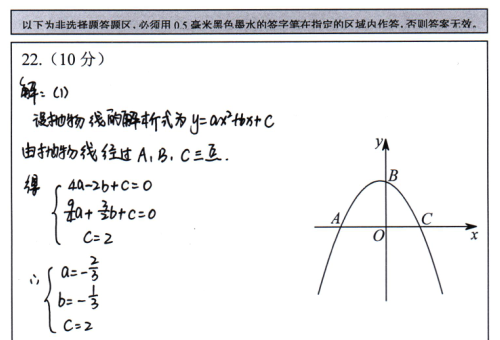 以下为非选择题答题区,必须用0.5毫米黑色墨水的签字笔在指定的区域内作答,否则答案无效。
22.(10分)
解:(1)
设抛物线的解析式为y=ax²+bx+c
由抛物线经过A,B,C三点.
得
4a-2b+c=0
9/4a+3/2b+c=0
c=2
∴
a=-2/3
b=-1/3
c=2
y
B
A
C
O
x